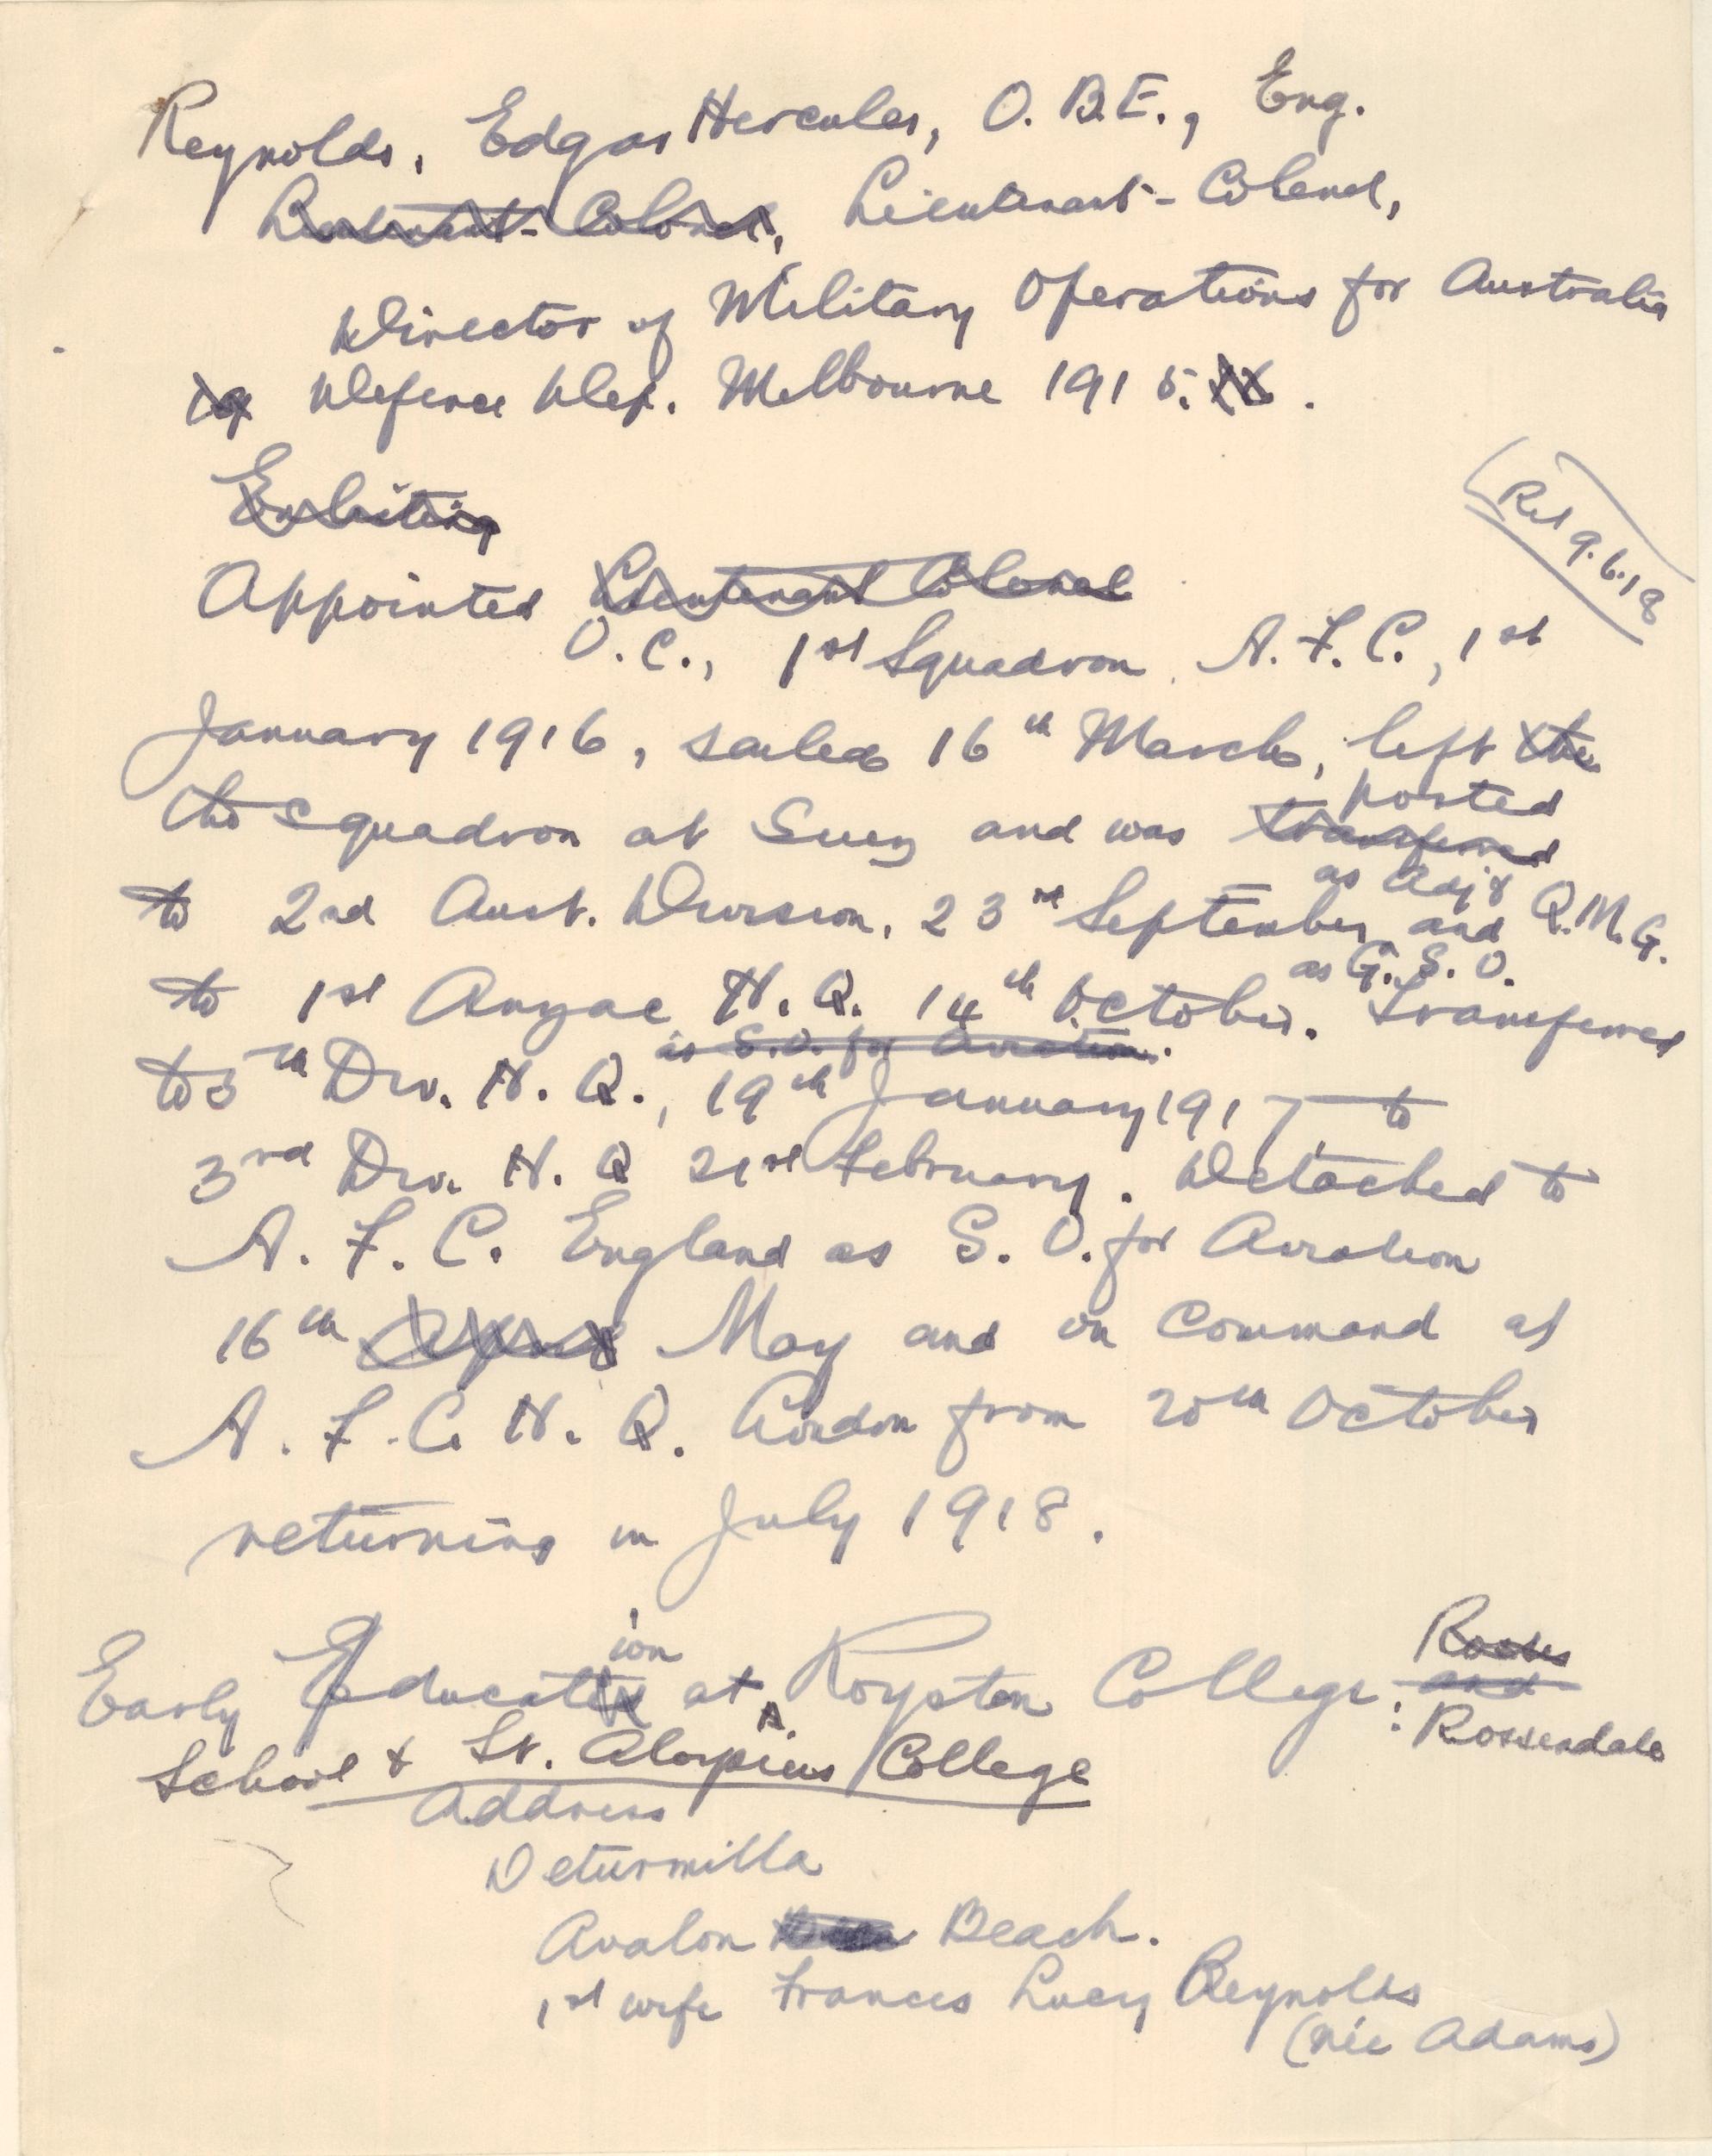 Reynolds, Edgar Hercules, O.B.E., Eng.
Lieutenant-Colonel, Lieutenant-Colonel,
Director of Military Operations for Australia
Defence Dep. Melbourne 1915.
Enlisting
Appointed Lieutenant Colonel
(Ret 9.6.18
O.C., 1st Squadron A.F.C., 1st
January 1916, sailed 16th March, left the
posted
the squadron at Suez and was transferred
as Adj &
to 2nd Aust. Division. 23rd September and Q.M.G.
as G.S.O.
to 1st Anzac H.Q. 14th October. Transferred
as S.O. for Aviation.
to 5th Div. H.Q., 19th January 1917 to
3rd Div. H.Q 21st February. Detached to
A.F.C. England as S.O. for Aviation
16th April May and in Command at
A.F.C. H.Q. London from 20th October
returning in July 1918.
ion
Early Educat at Royston College:
and
Rossendale
School & St. Aloysius College
Address
Deturmilla
Avalon Beach.
1st wife Frances Lucy Reynolds
(née Adams)